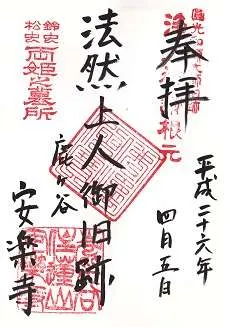 奉拝
根元
平成二十六年
四月五日
法然上人御旧跡
鹿ヶ谷
安楽寺
鈴虫
松虫
両姫之墓所
住蓮山